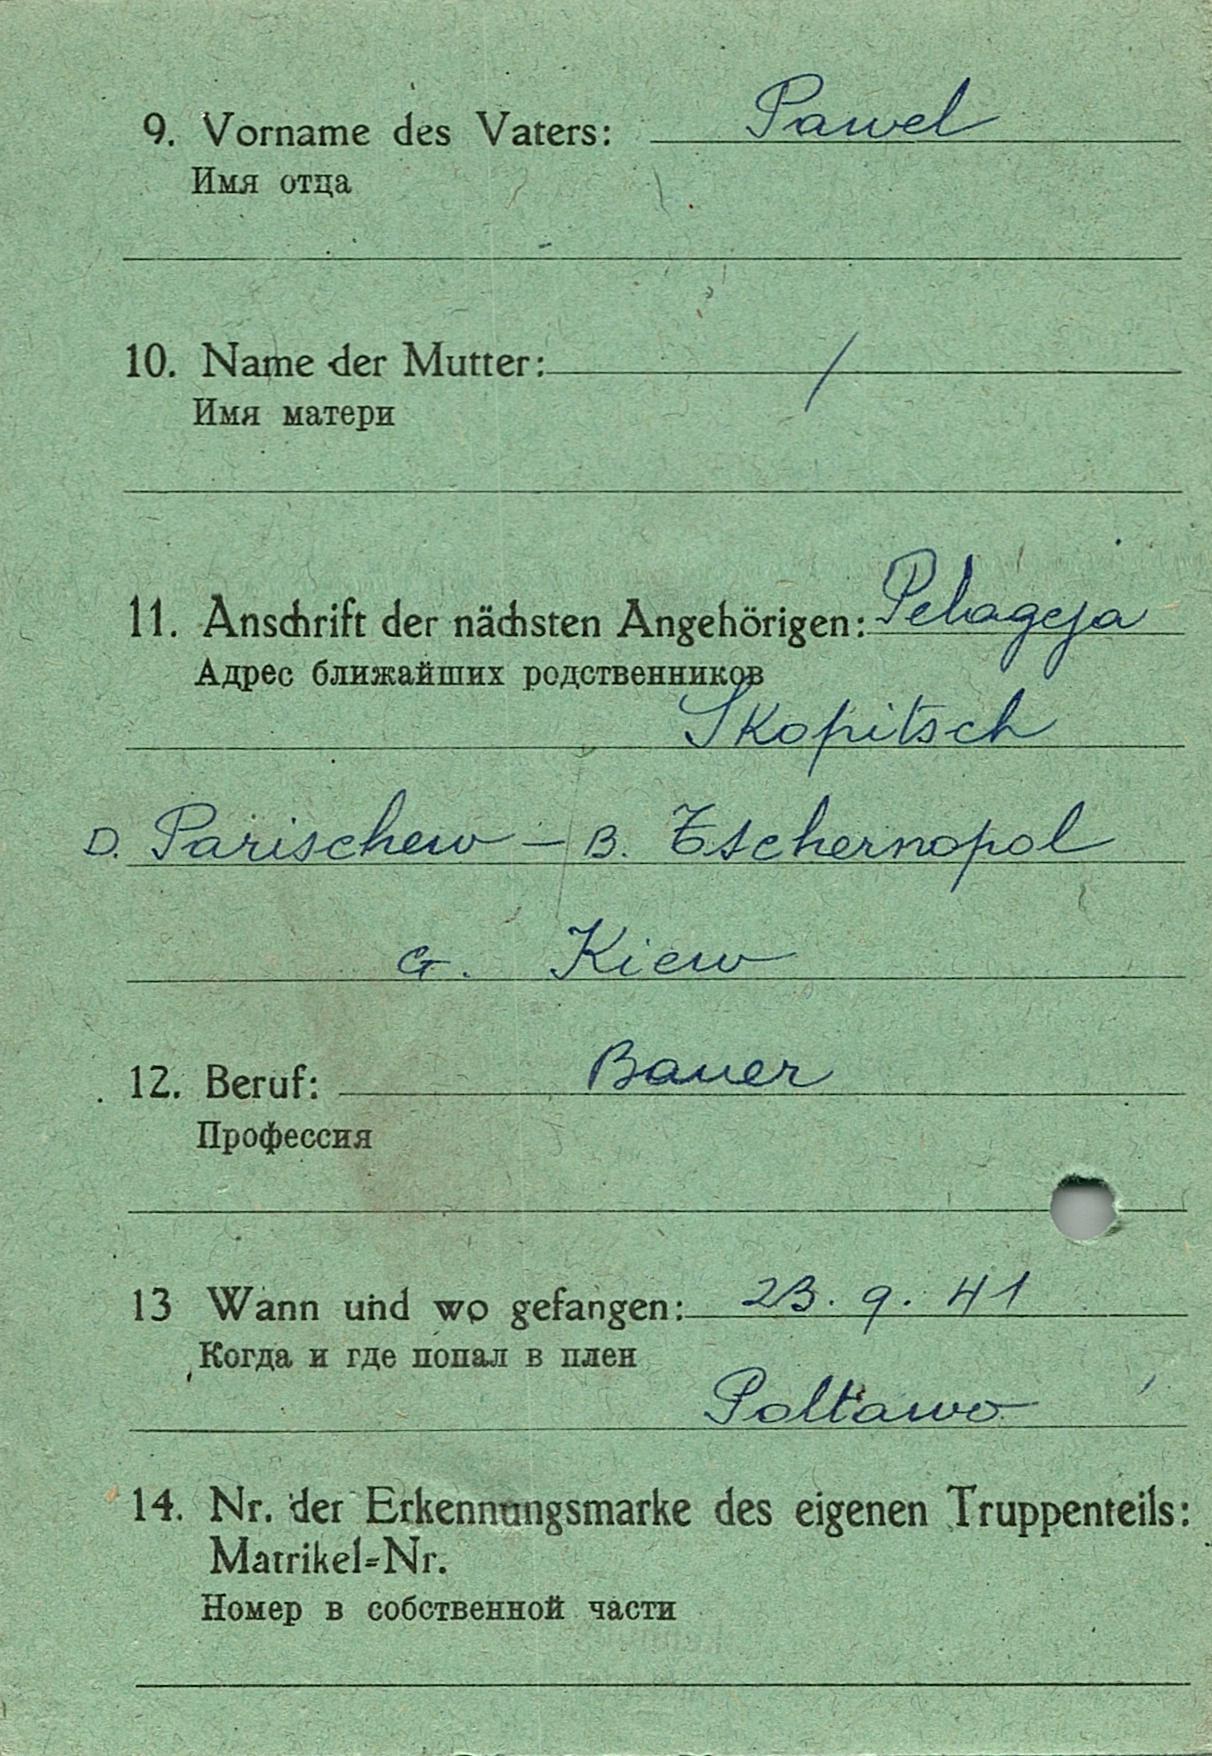 9. Vorname des Vaters: Pawel
Имя отца
10. Name der Mutter: /
Имя матери
11. Anschrift der nächsten Angehörigen: Pelageja
Адрес ближайших родственников
Skopitsch
D. Parischew – B. Tschernopol
G. Kiew
12. Beruf: Bauer
Профессия
13 Wann und wo gefangen: 23. 9. 41
Когда и где попал в плен
Poltawo
14. Nr. der Erkennungsmarke des eigenen Truppenteils:
Matrikel-Nr.
Номер в собственной части